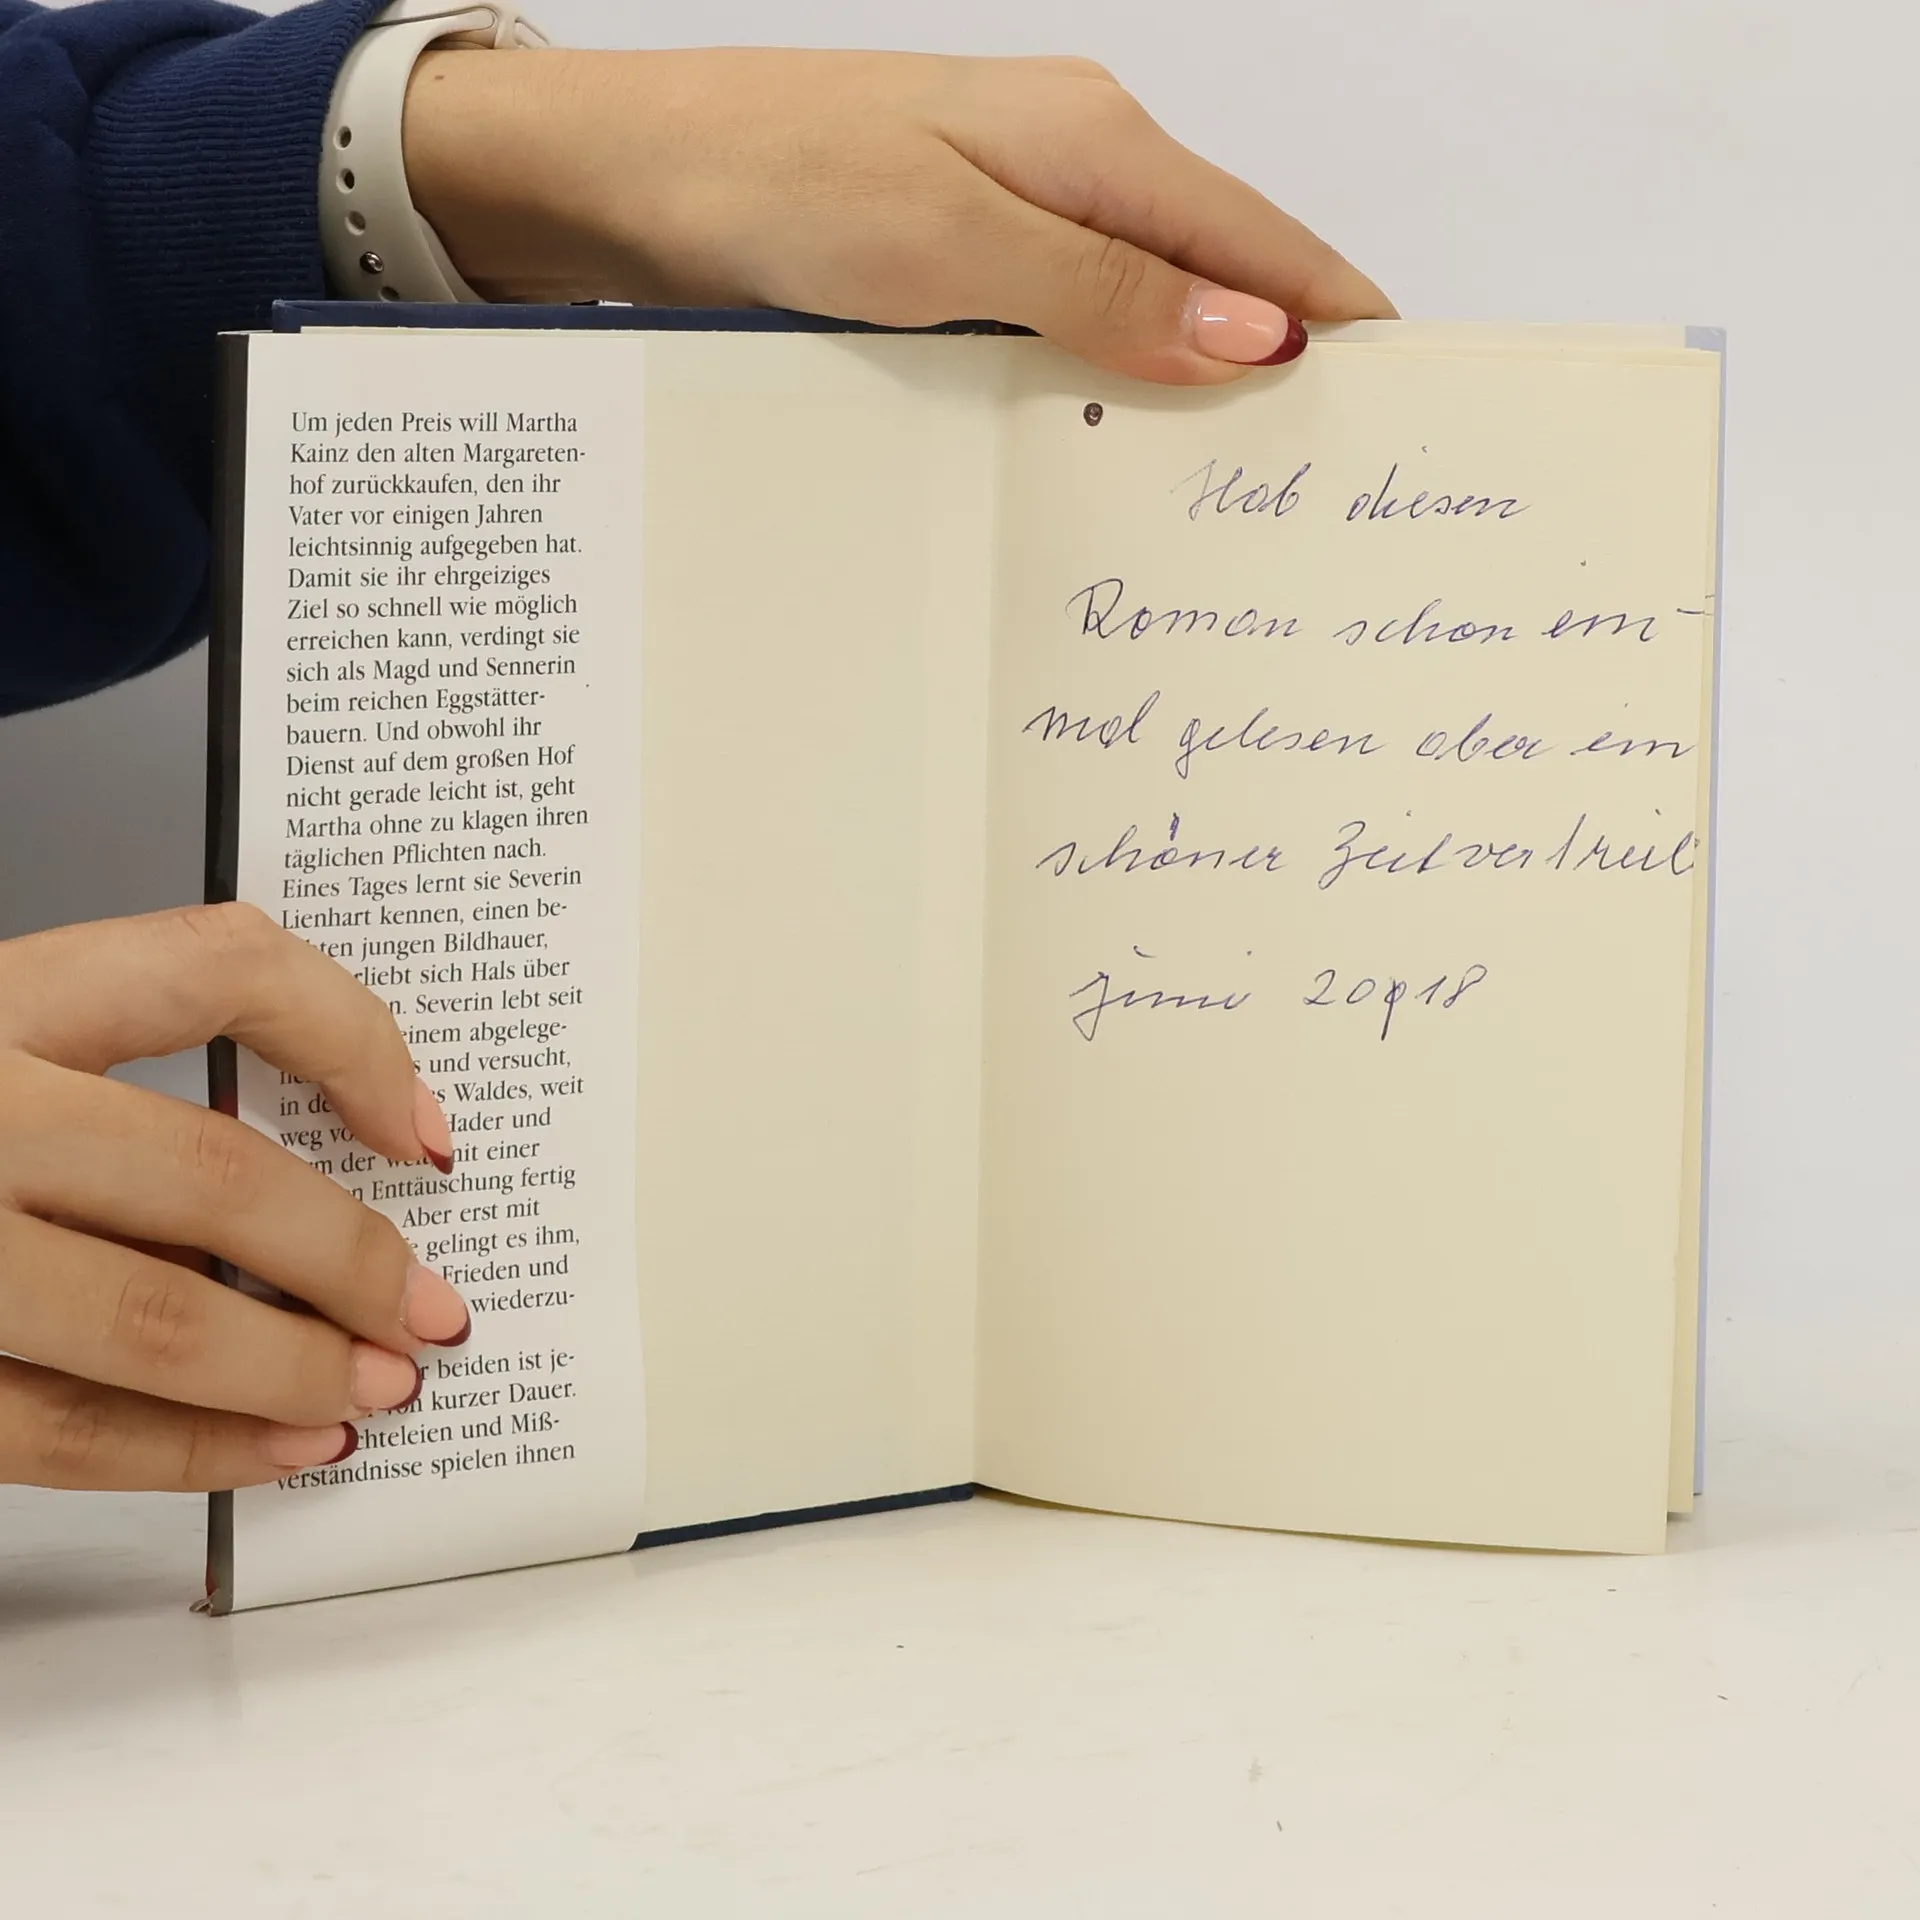 Um jeden Preis will Martha
Kainz den alten Margareten-
hof zurückkaufen, den ihr
Vater vor einigen Jahren
leichtsinnig aufgegeben hat.
Damit sie ihr ehrgeiziges
Ziel so schnell wie möglich
erreichen kann, verdingt sie
sich als Magd und Sennerin
beim reichen Eggstätter-
bauern. Und obwohl ihr
Dienst auf dem großen Hof
nicht gerade leicht ist, geht
Martha ohne zu klagen ihren
täglichen Pflichten nach.
Eines Tages lernt sie Severin
Lienhart kennen, einen be-
jungen Bildhauer,
sich Hals über
Severin lebt seit
einem abgelege-
und versucht,
in Waldes, weit
weg Hader und
der mit einer
Enttäuschung fertig
Aber erst mit
gelingt es ihm,
Frieden und
wiederzu-
beiden ist je-
von kurzer Dauer.
und Miß-
verständnisse spielen ihnen
Hab diesen
Roman schon ein-
mal gelesen aber ein
schöner Zeitvertreib
juni 20018